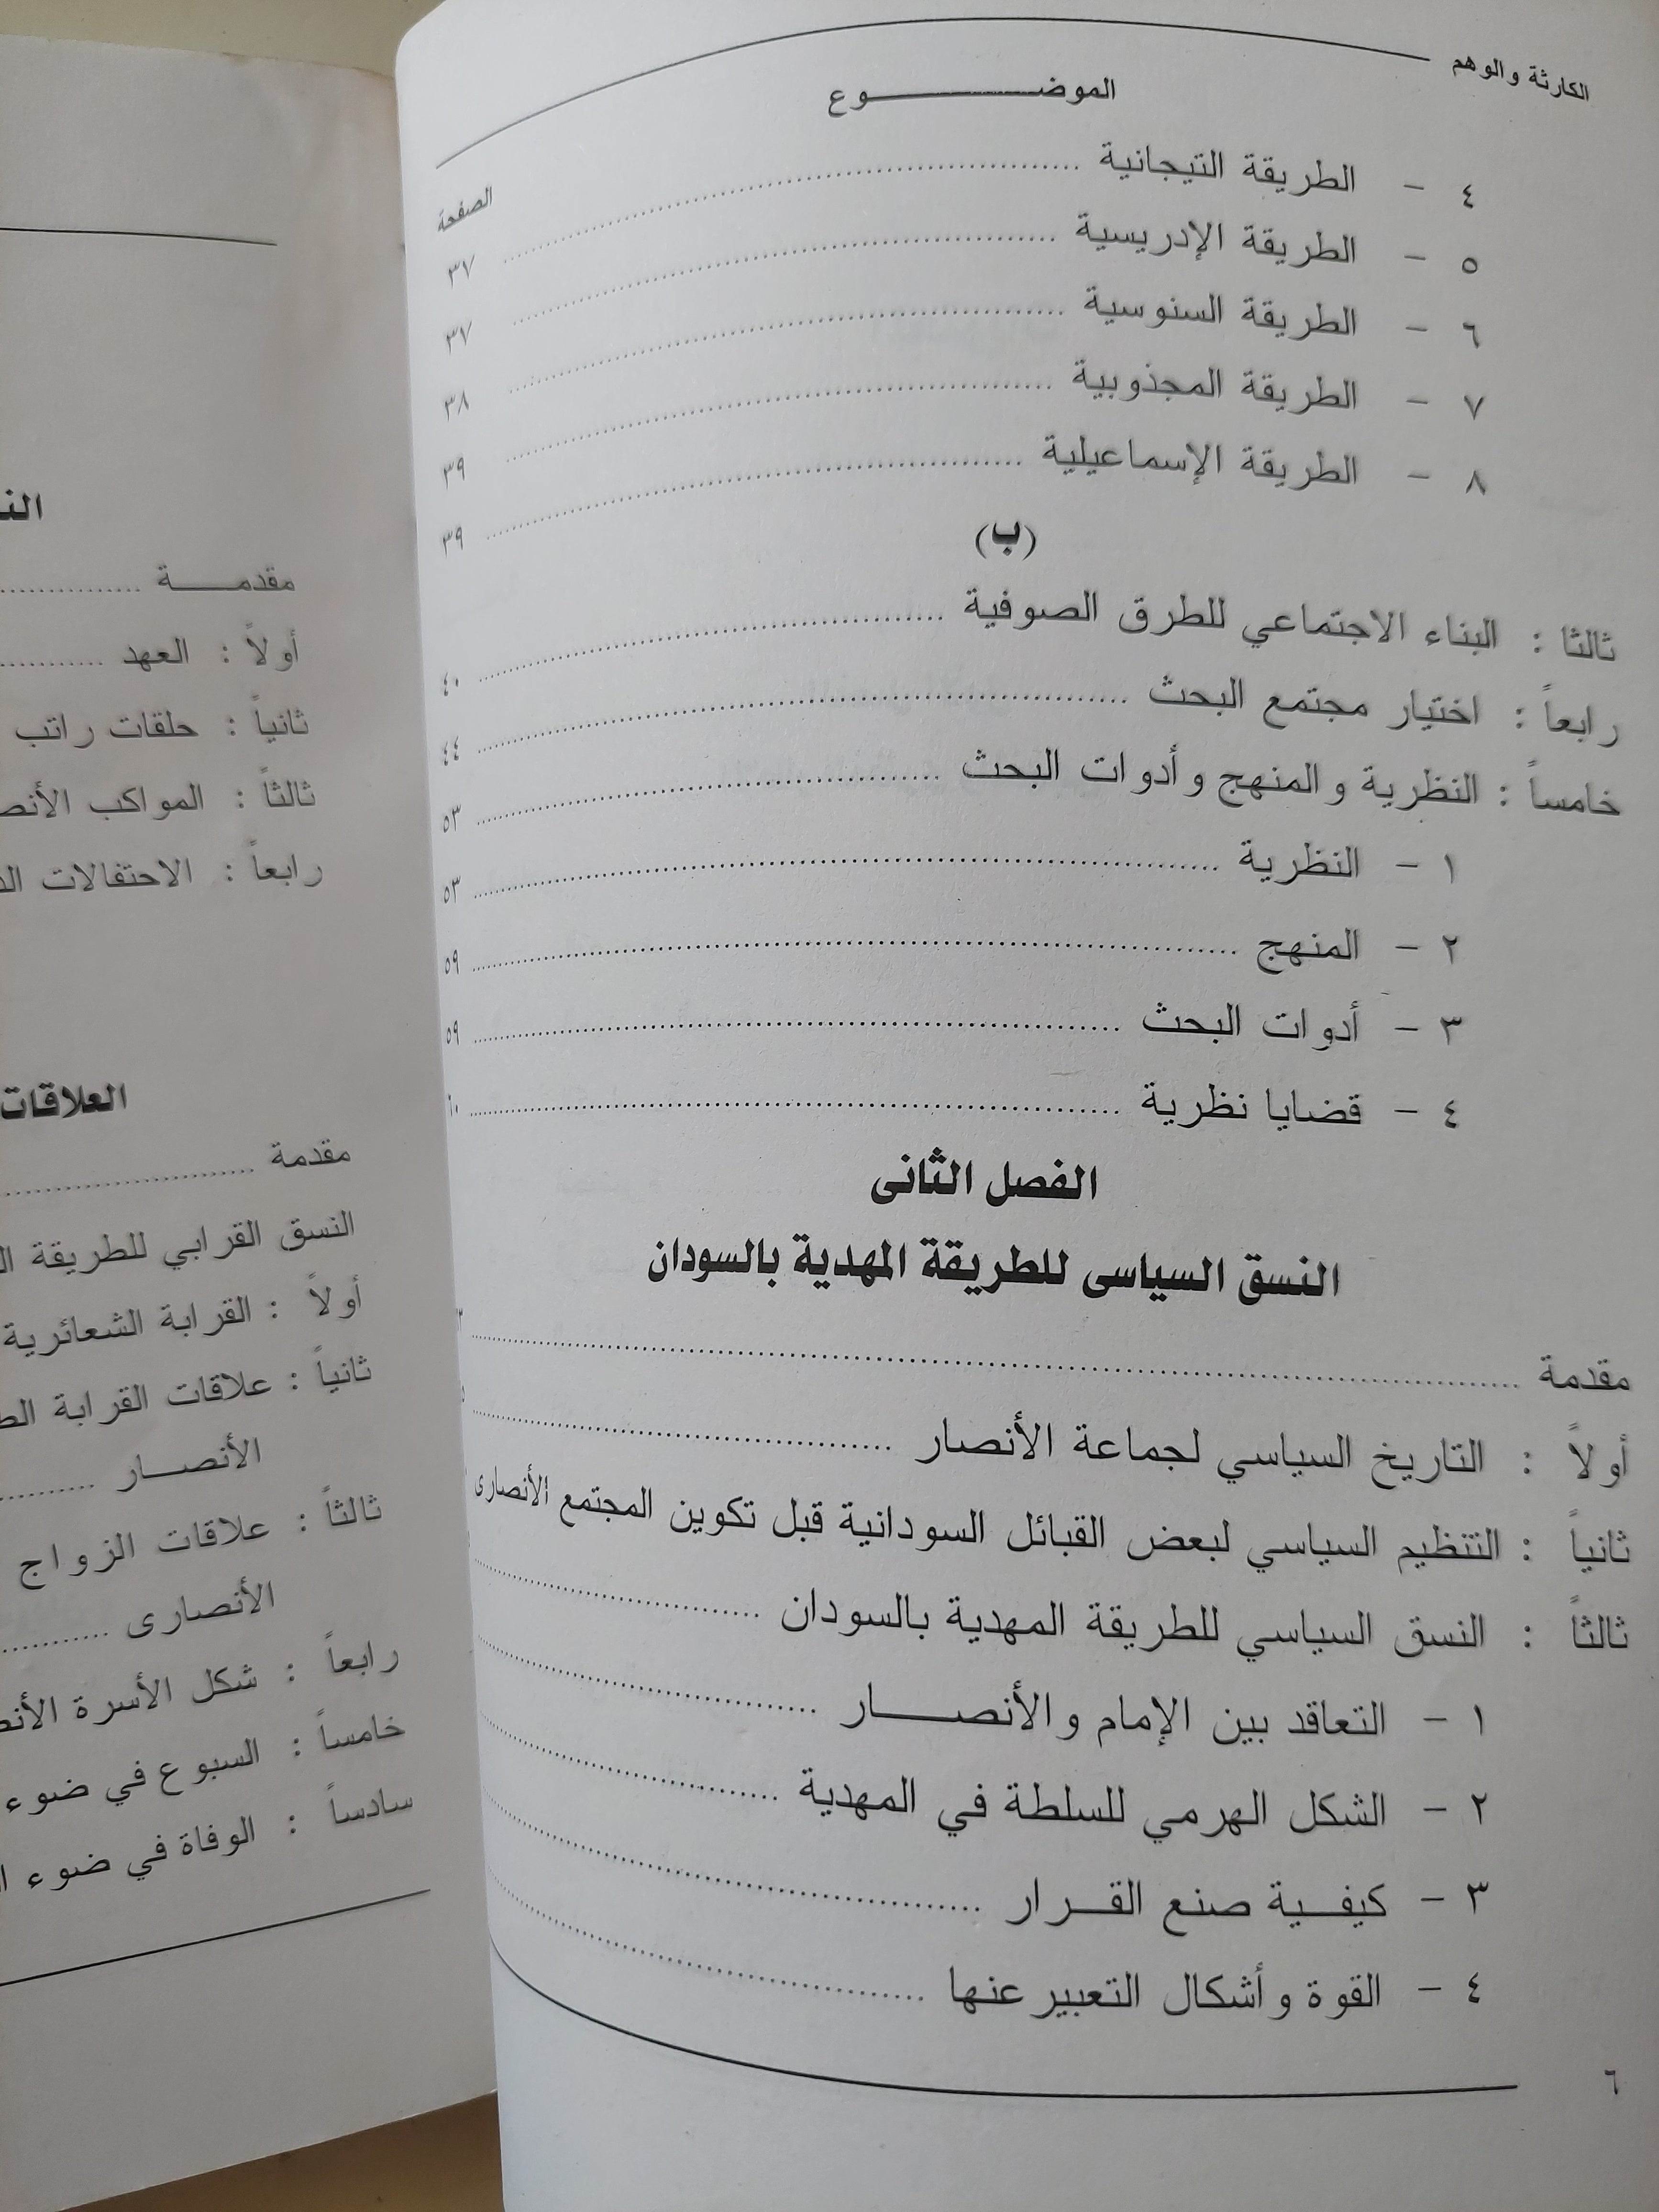 الكارثة والوهم
الموضـــــــــــوع
الصفحة
٤ - الطريقة التيجانية ........................ ٣٧
٥ - الطريقة الإدريسية ........................ ٣٧
٦ - الطريقة السنوسية ........................ ٣٨
٧ - الطريقة المجذوبية ........................ ٣٩
٨ - الطريقة الإسماعيلية ........................ ٣٩
(ب)
ثالثا : البناء الاجتماعي للطرق الصوفية ........................ ٤٠
رابعاً : اختيار مجتمع البحث ........................ ٤٤
خامساً : النظرية والمنهج وأدوات البحث ........................ ٥٣
١ - النظرية ........................ ٥٣
٢ - المنهج ........................ ٥٩
٣ - أدوات البحث ........................ ٥٩
٤ - قضايا نظرية ........................ ٦٠
الفصل الثانى
النسق السياسى للطريقة المهدية بالسودان
مقدمة ........................
أولاً : التاريخ السياسي لجماعة الأنصار ........................
ثانياً : التنظيم السياسي لبعض القبائل السودانية قبل تكوين المجتمع الأنصارى
ثالثاً : النسق السياسي للطريقة المهدية بالسودان ........................
١ - التعاقد بين الإمام والأنصــــار ........................
٢ - الشكل الهرمي للسلطة في المهدية ........................
٣ - كيفــية صنع القــرار ........................
٤ - القوة وأشكال التعبير عنها ........................
٦
مقدمـــــة ........................
أولاً : العهد ........................
ثانياً : حلقات راتب
ثالثاً : المواكب
رابعاً : الاحتفالات
العلاقات
مقدمة ........................
النسق القرابي للطريقة
أولاً : القرابة الشعائرية
ثانياً : علاقات القرابة
الأنصــار ........................
ثالثاً : علاقات الزواج
الأنصارى ........................
رابعاً : شكل الأسرة
خامساً : السبوع في ضوء
سادساً : الوفاة في ضوء